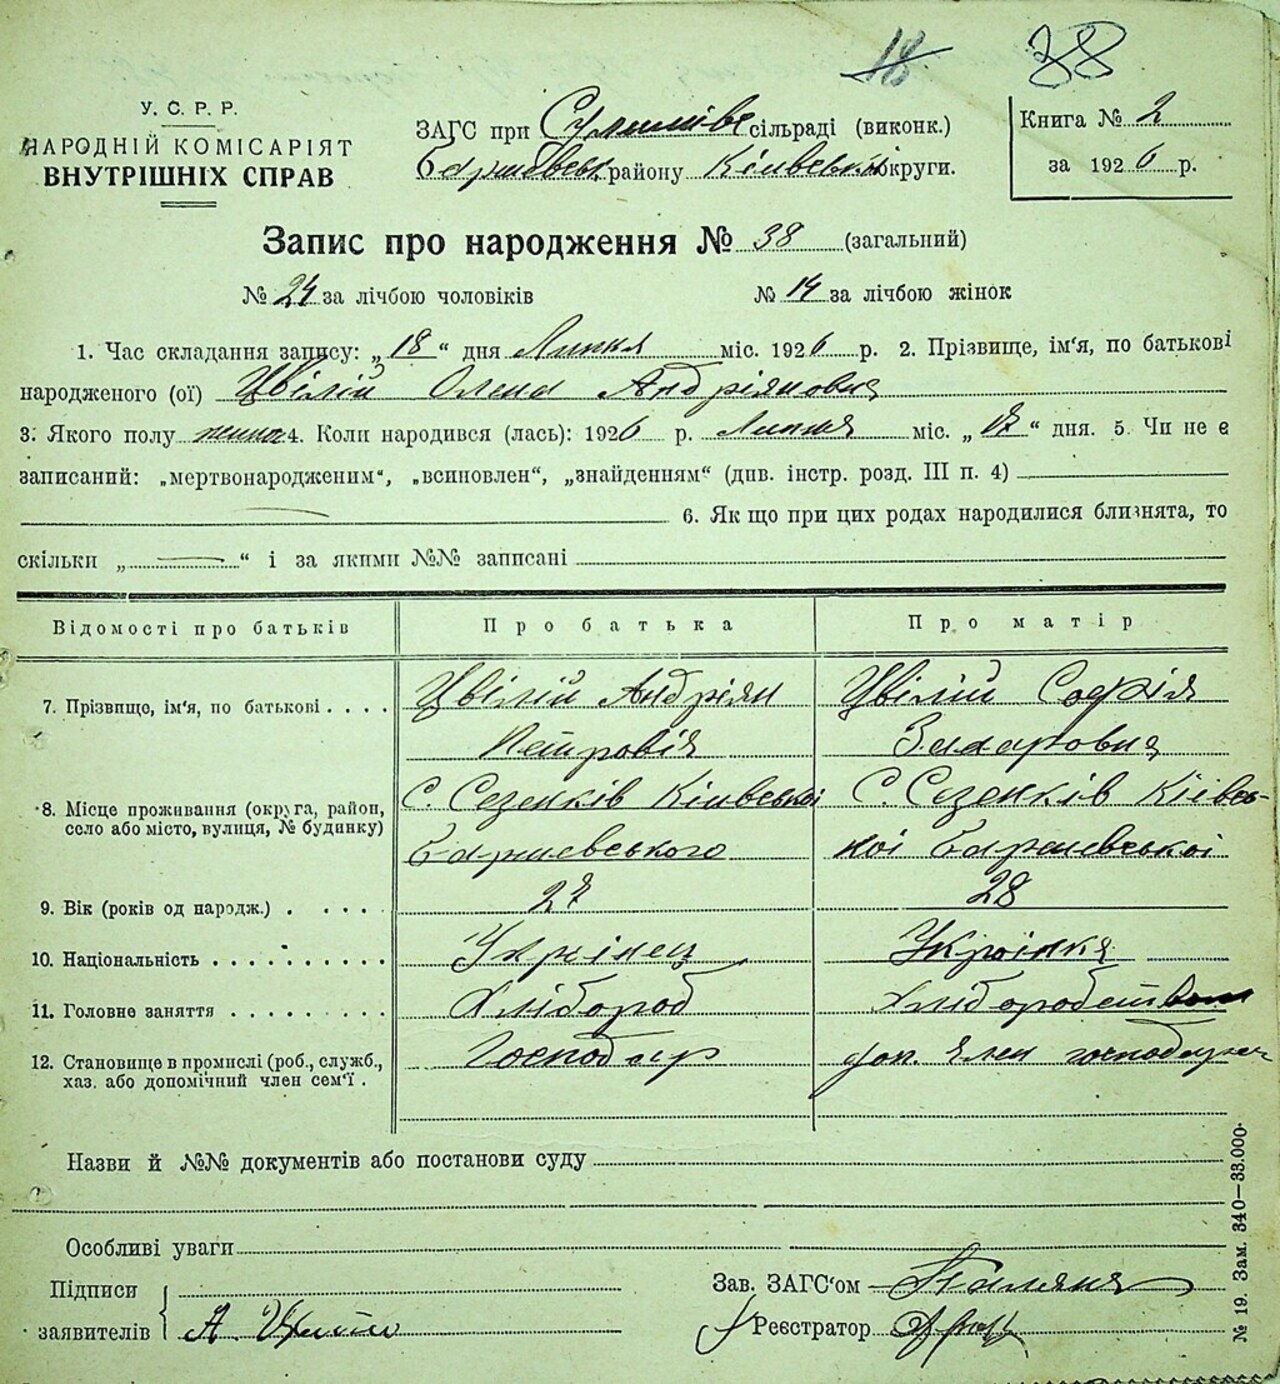 18 38
У. С. Р. Р.
НАРОДНІЙ КОМІСАРІЯТ
ВНУТРІШНІХ СПРАВ
ЗАГС при Сулимівс сільраді (виконк.)
району Київської округи.
Книга № 2
за 1926 р.
Запис про народження № 38 (загальний)
№ 24 за лічбою чоловіків № 14 за лічбою жінок
1. Час складання запису: „18“ дня Липня міс. 1926 р. 2. Прізвище, ім'я, по батькові
народженого (ої) Цвілій Олена Андріяновна
3. Якого полу 4. Коли народився (лась): 1926 р. Липня міс. „17“ дня. 5. Чи не є
записаний: „мертвонародженим“, „всиновлен“, „знайденням“ (див. інстр. розд. III п. 4)
6. Як що при цих родах народилися близнята, то
скільки „ “ і за якими №№ записані
Відомості про батьків Про батька Про матір
7. Прізвище, ім'я, по батькові . . . . Цвілій Андріян Цвілій Софія
Петровія Захаровна
8. Місце проживання (округа, район, село або місто, вулиця, № будинку) С. Сезенків Київської С. Сезенків Київсь-
кої
9. Вік (років од народж.) . . . . . 27 28
10. Національність . . . . . . . . . . Украінец Украінка
11. Головне заняття . . . . . . . . . Хлібороб
12. Становище в промислі (роб., служб., хаз. або допомічний член сем'ї . Господар доп. член
Назви й №№ документів або постанови суду
Особливі уваги
Підписи
заявителів А.
Зав. ЗАГС'ом
Реєстратор
№ 19. Зам. 340—33.000.